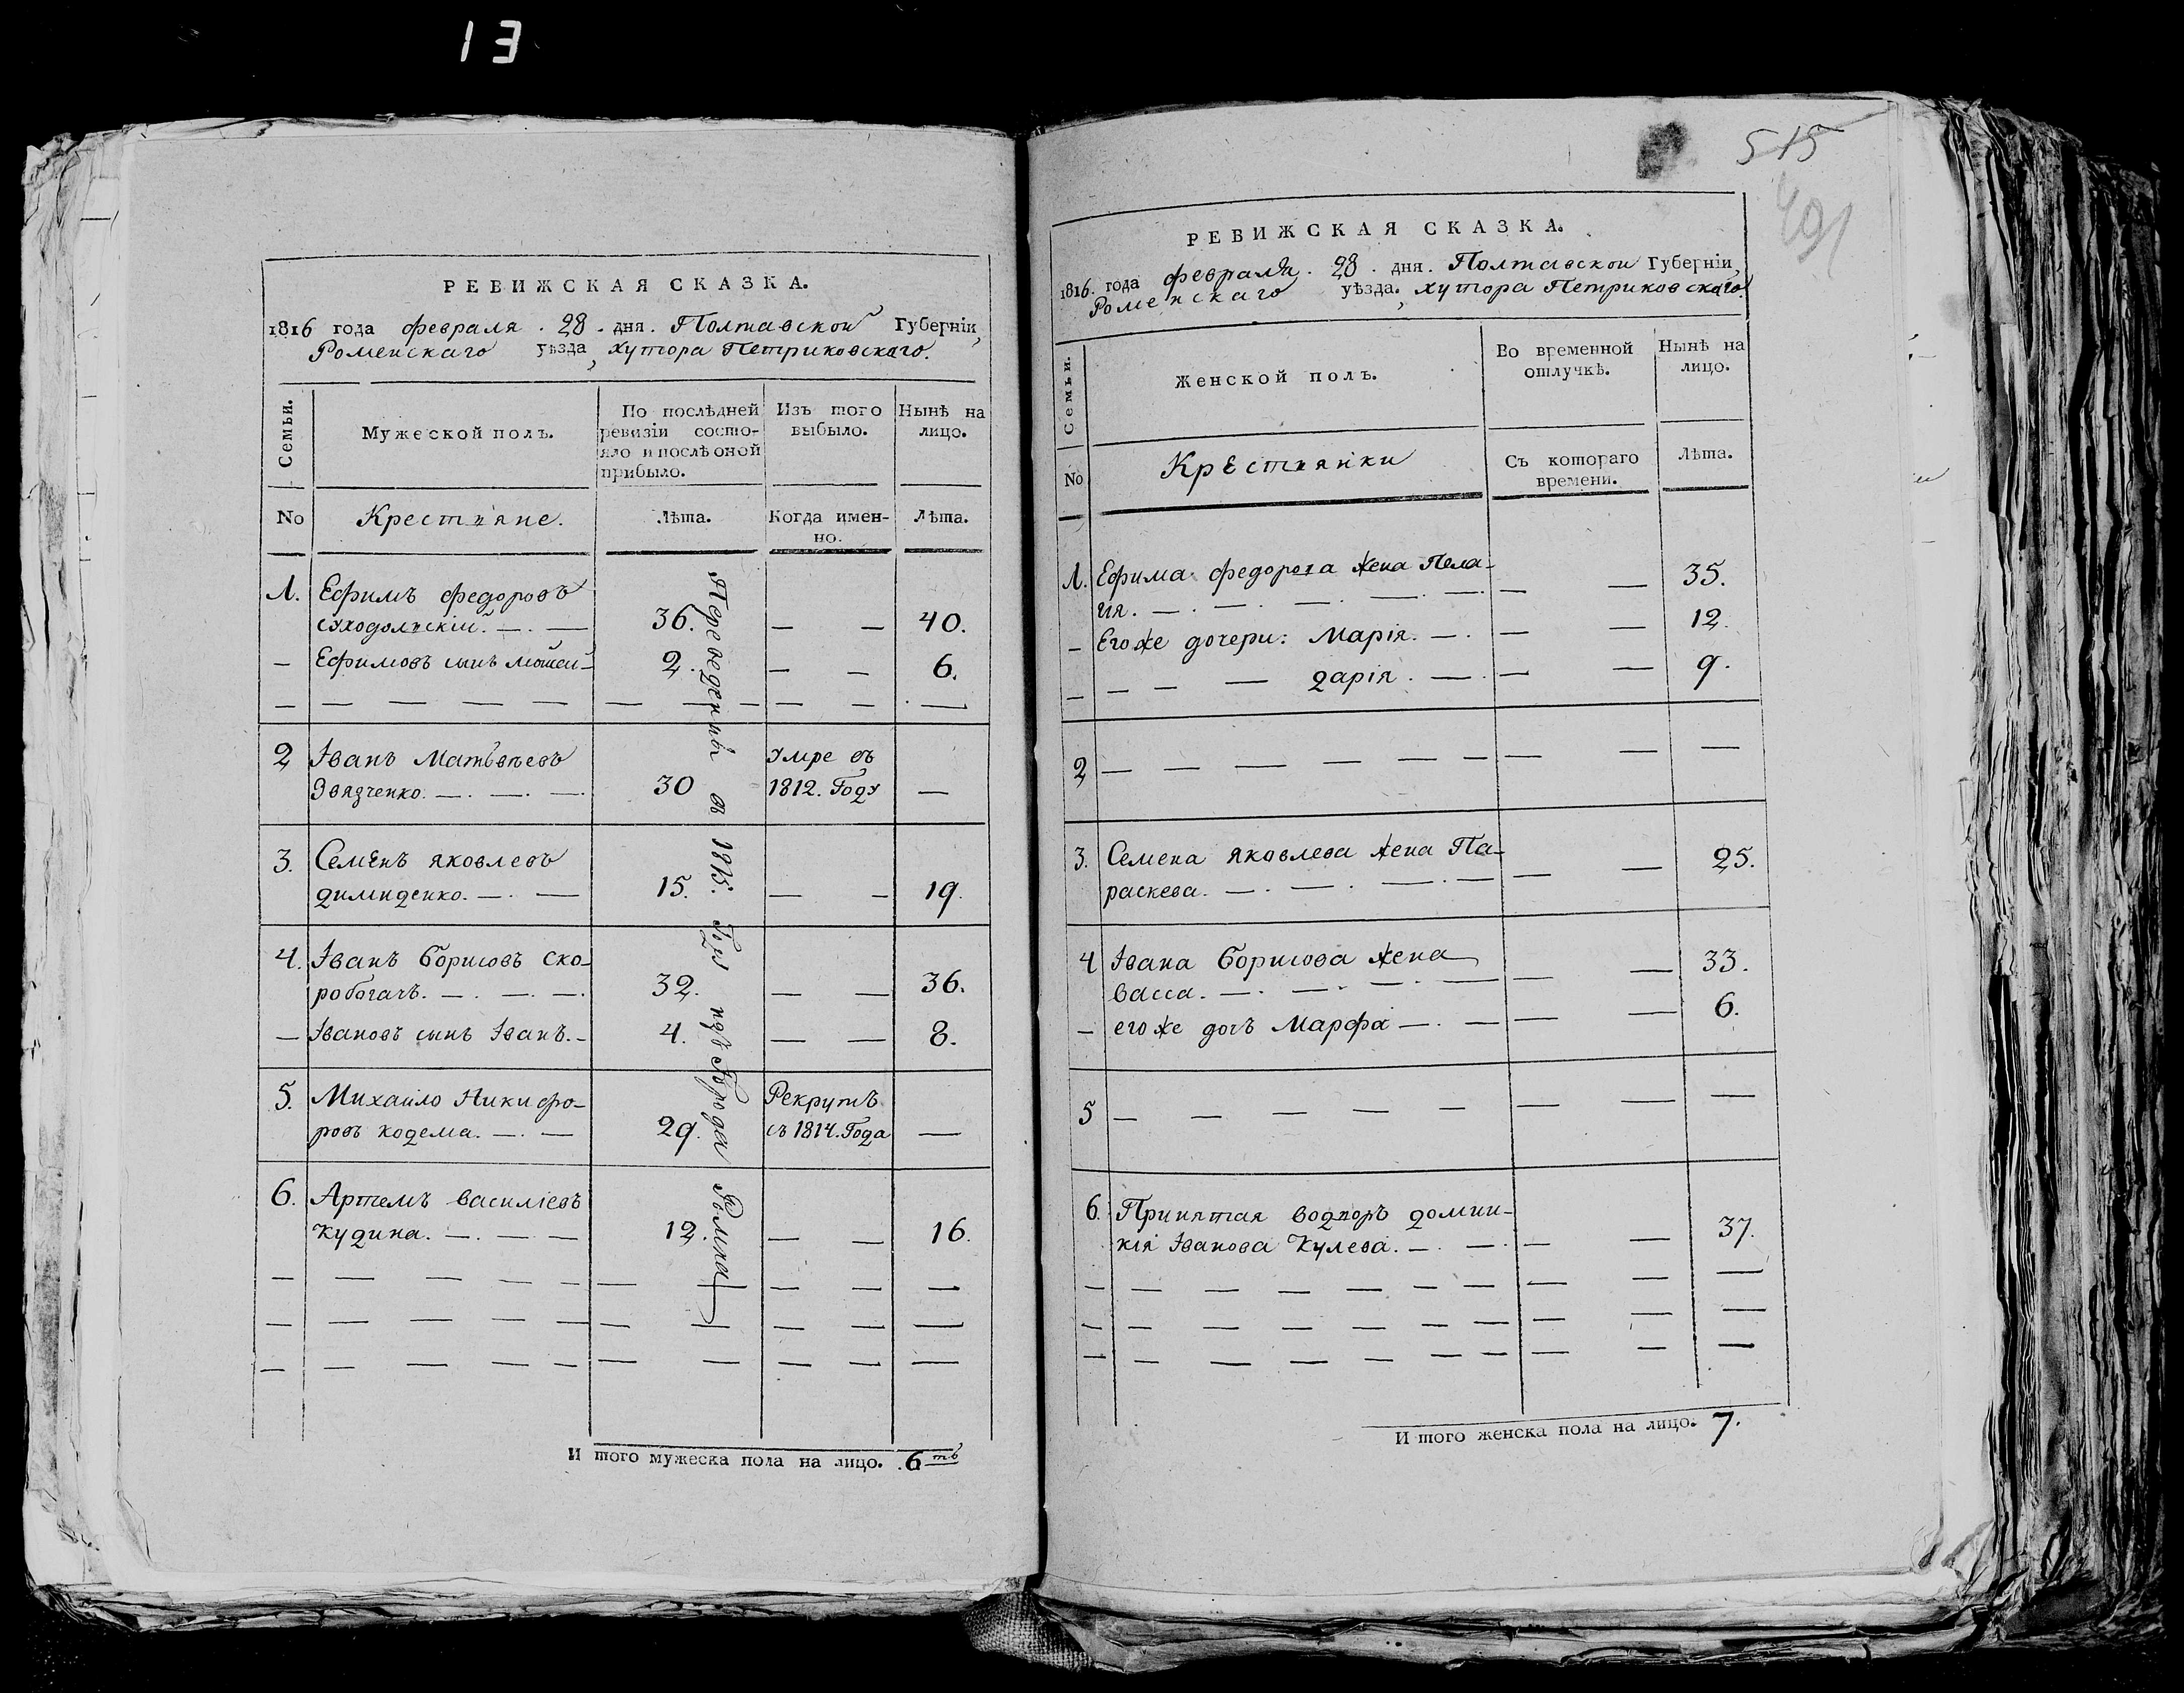 13
РЕВИЖСКАЯ СКАЗКА.
1816 года февраля. 28. дня. Полтавской Губерніи,
Роменскаго уѣзда, хутора Петриковскаго.
Семьи.
Мужеской полъ.
По послѣдней
ревизіи состо-
яло и послѣ оной
прибыло.
Изъ того
выбыло.
Нынѣ на
лицо.
No
Крестьяне.
Лѣта.
Когда имен-
но.
Лѣта.
1. Ефимъ федоровъ
суходольскій. 36. 40.
Ефимовъ сынъ 2. 6.
2 Іванъ Матвѣевъ Умре въ
30 1812. Году
3. Семенъ яковлевъ
димиденко. 15. 19.
4. Іванъ Борисовъ Ско-
робогачъ. 32. 36.
Івановъ сынъ Іванъ. 4. 8.
5. Михайло Никифо- Рекрутъ
ровъ кодема. 29. съ 1814. Года
6. Артемъ василіевъ
Кудина. 12. 16.
Переведенны в 1815. Году изъ Города Ромна
И того мужеска пола на лицо. 6ть
515
491
РЕВИЖСКАЯ СКАЗКА.
1816. года февраля. 28. дня. Полтавской Губерніи,
Роменскаго уѣзда, хутора Петриковскаго.
Семьи.
Женской полъ.
Во временной
отлучкѣ.
Нынѣ на
лицо.
No
Крестьянки
Съ котораго
времени.
Лѣта.
1. Ефима федорова жена Пела- 35.
гія.
Егоже дочери: Марія. 12.
дарія. 9.
2
3. Семена яковлева жена Па- 25.
раскева.
4 Івана Борисова жена 33.
васса.
егоже дочь Марфа 6.
5
6. Принятая водворъ домни-
кія Іванова Кулева. 37.
И того женска пола на лицо. 7.